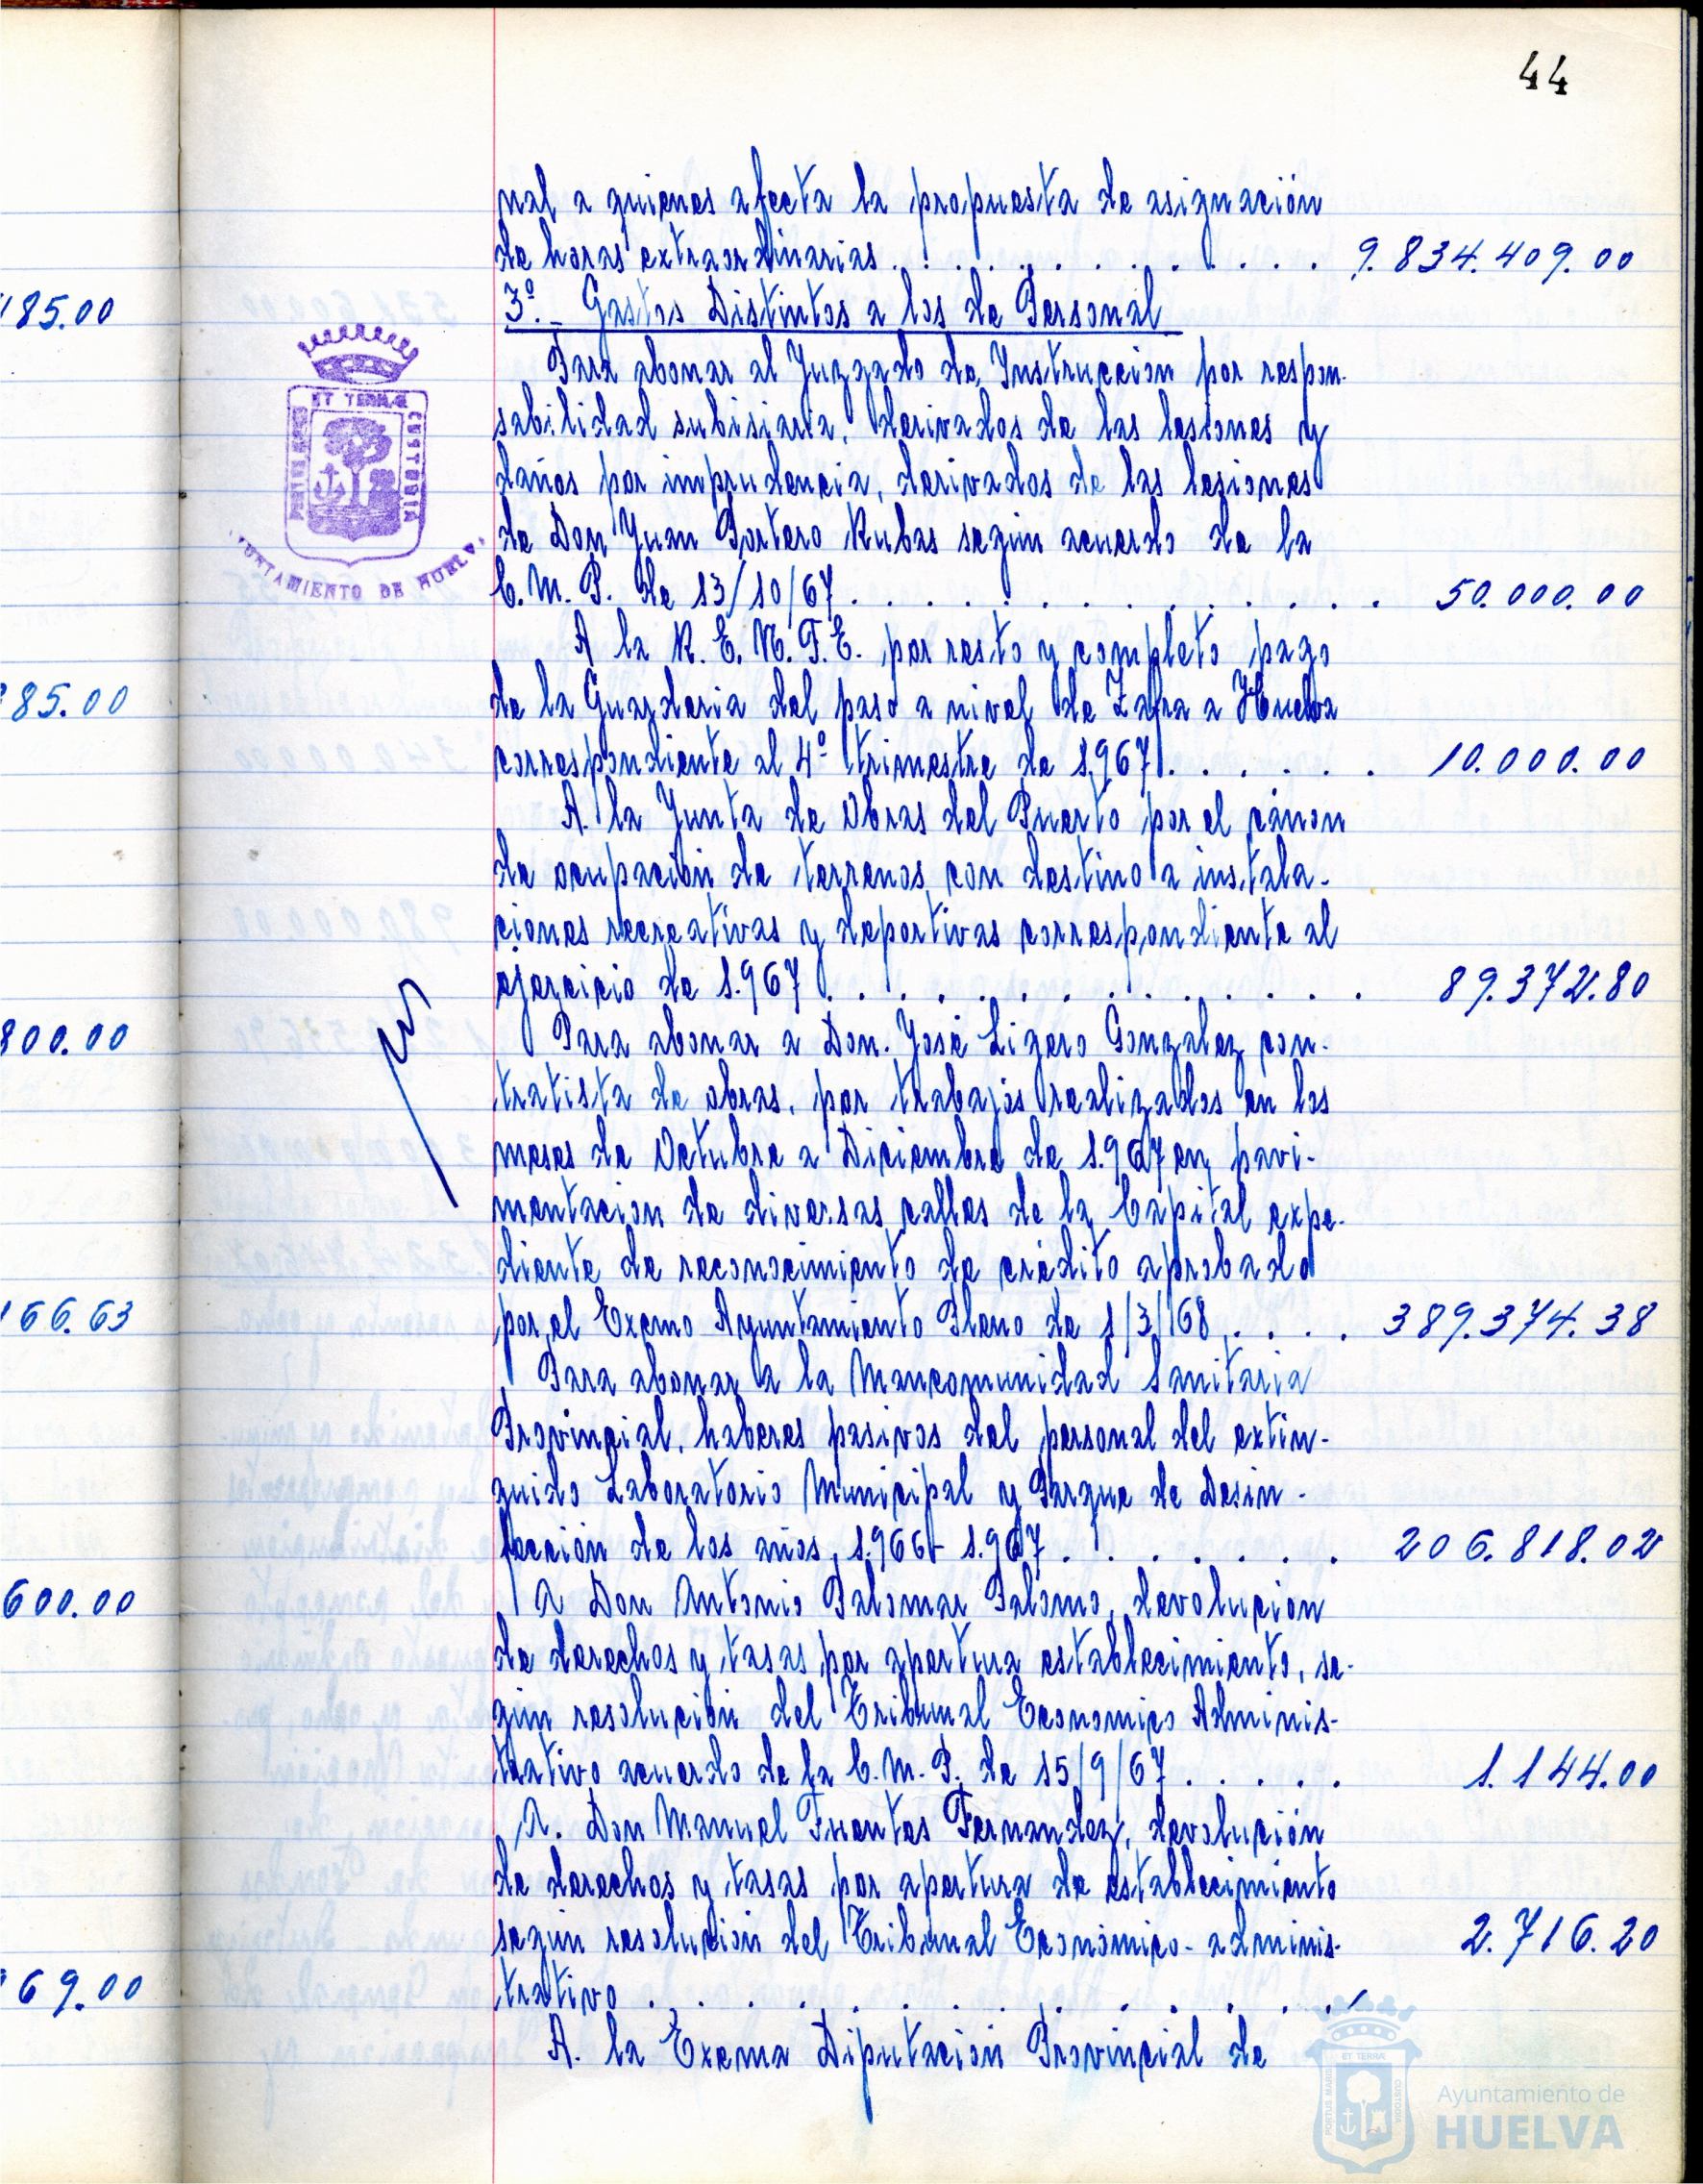 44
185.00
85.00
800.00
166.63
600.00
69.00
ET TERRÆ
PORTUS MARIS
CUSTODIA
AYUNTAMIENTO DE HUELVA
nal a quienes afecta la propuesta de asignación
de horas extraordinarias . . . . . . . . . . . 9.834.409.00
3º.- Gastos Distintos a los de Personal
Para abonar al Juzgado de Instruccion por respon-
sabilidad subisiaria, derivados de las lesiones y
daños por imprudencia, derivados de las lesiones
de Don Juan Portero Rubas según acuerdo de la
C.M.P. de 13/10/67 . . . . . . . . . . . . . 50.000.00
A la R.E.N.F.E. por resto y completo pago
de la Guarderia del paso a nivel de Zafra a Huelva
correspondiente al 4º trimestre de 1.967 . . . . . . 10.000.00
A la Junta de Obras del Puerto por el cánon
de ocupación de terrenos con destino a instala-
ciones recreativas y deportivas correspondiente al
ejercicio de 1.967 . . . . . . . . . . . . . 89.372.80
Para abonar a Don. José Ligero Gonzalez con-
tratista de obras, por trabajos realizados en los
meses de Octubre a Diciembre de 1.967 en pavi-
mentacion de diversas calles de la Capital expe-
diente de reconocimiento de crédito aprobado
por el Excmo Ayuntamiento Pleno de 1/3/68 . . . . 389.374.38
Para abonar a la Mancomunidad Sanitaria
Provincial, haberes pasivos del personal del extin-
guido Laboratorio Municipal y Parque de Desin-
fección de los años, 1.966 1.967 . . . . . . . 206.818.02
A Don Antonio Palomar Palomo, devolución
de derechos y tasas por apertura establecimiento, se-
gún resolución del Tribunal Economico Adminis-
trativo acuerdo de la C.M.P. de 15/9/67 . . . . . 1.144.00
A. Don Manuel Fuentes Fernandez, devolución
de derechos y tasas por apertura de establecimiento
según resolución del Tribunal Económico-adminis- 2.716.20
trativo . . . . . . . . . . . . . .
A. la Excma Diputación Provincial de
ET TERRÆ
PORTUS MARIS
CUSTODIA
Ayuntamiento de
HUELVA